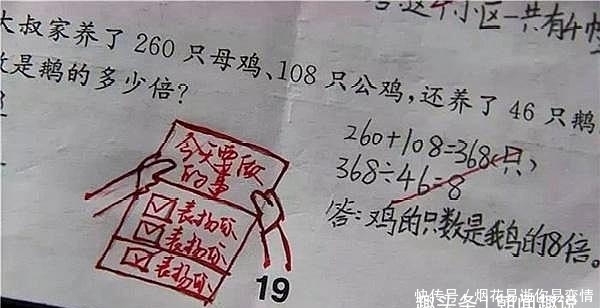 这个小区一共有4幢
大叔家养了 260 只母鸡、108 只公鸡，还养了 46 只鹅
数是鹅的多少倍？
260+108=368(只)
368÷46=8
答：鸡的只数是我鹅的8倍。
今天要做
的事
表扬你
表扬你
表扬你
19
快传号／烟花易逝你易变情